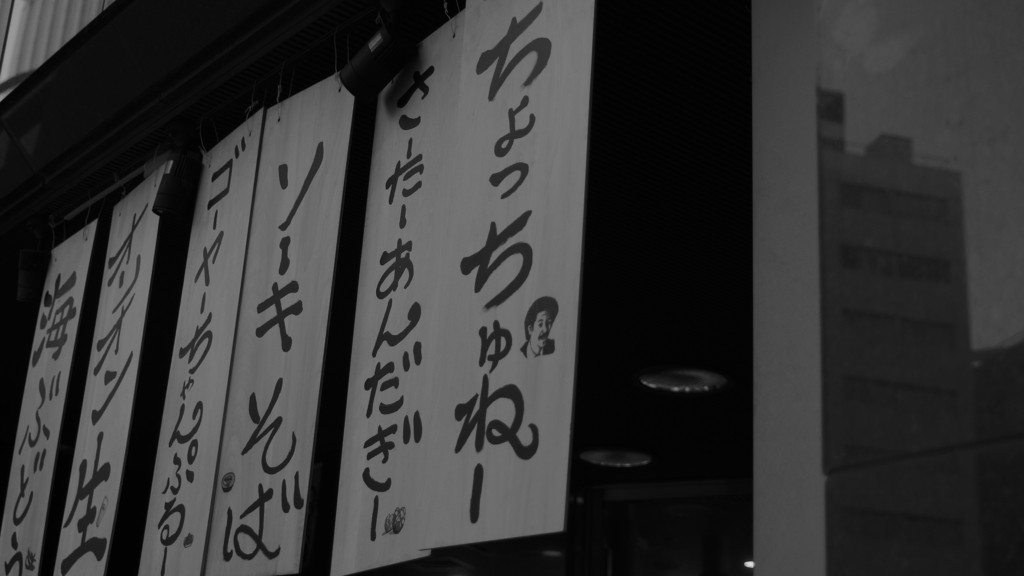 ちょっちゅねー
さーたーあんだぎー
ソーキそば
ゴーヤーちゃんぷるー
オリオン生
海ぶどう